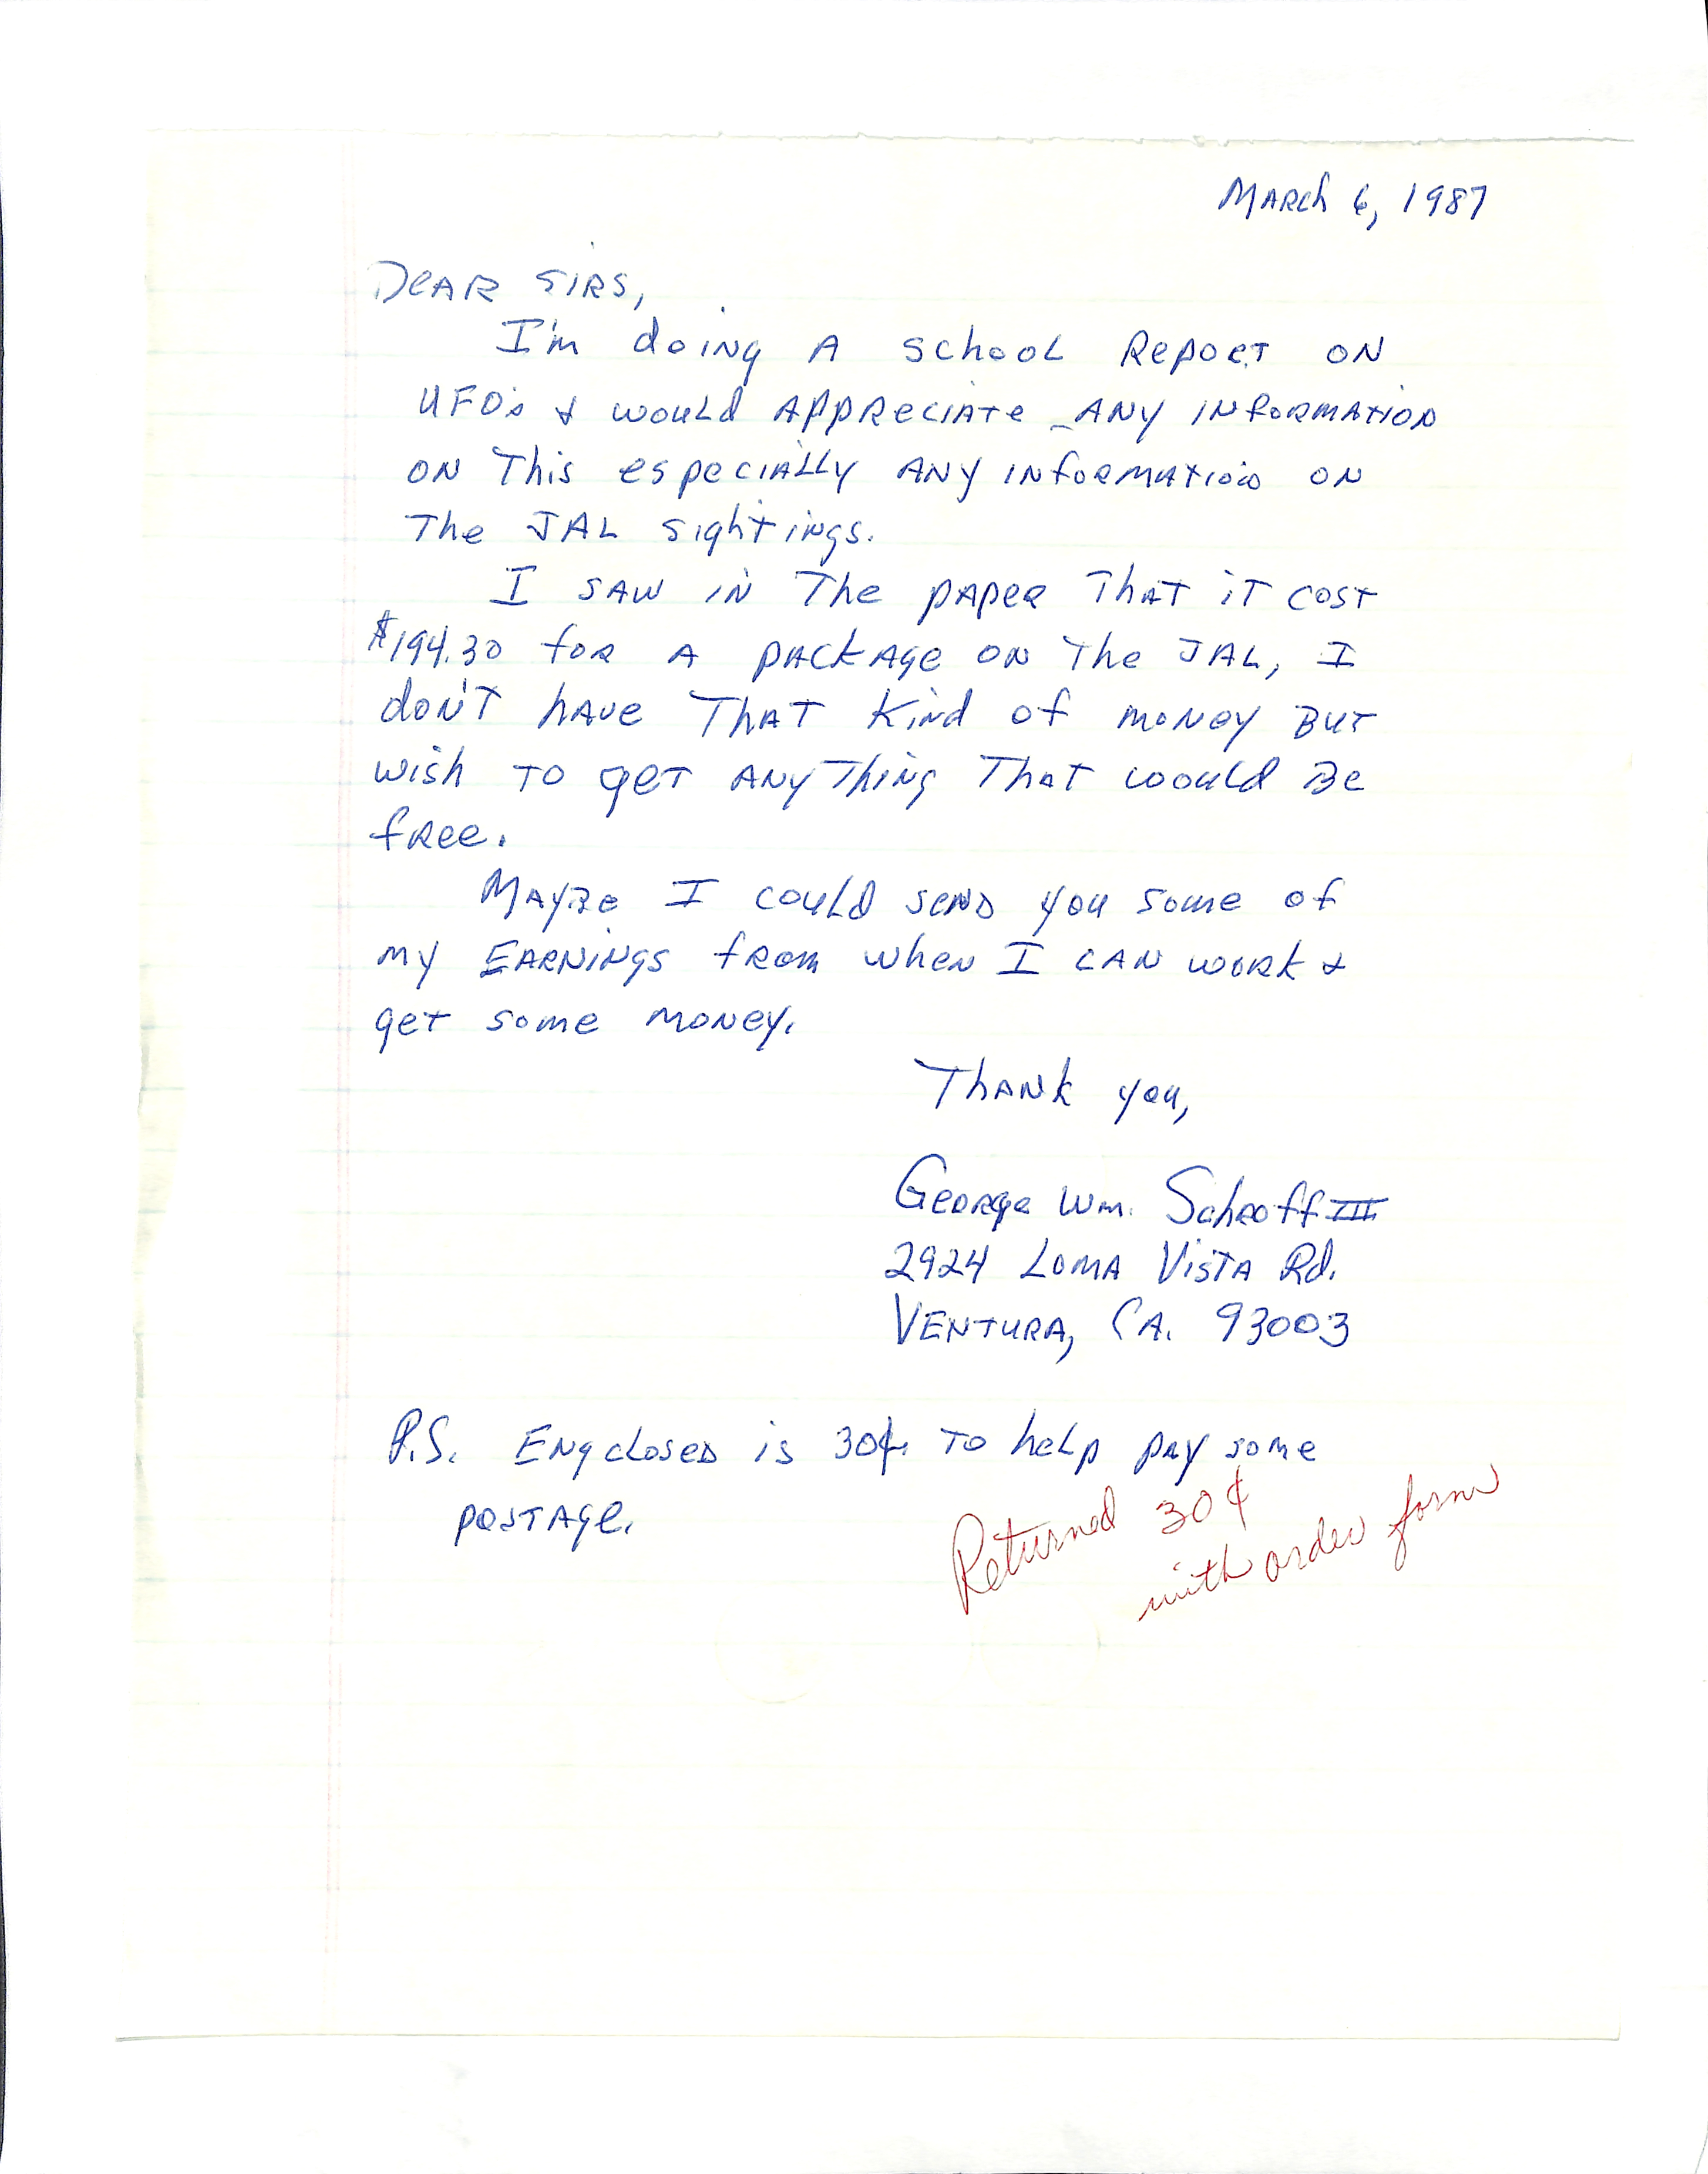 March 6, 1987
Dear Sirs,
I'm doing a school report on
UFO's & would appreciate any information
on this especially any information on
the JAL sightings.
I saw in the paper that it cost
$194.30 for a package on the JAL, I
don't have that kind of money but
wish to get anything that woould be
free.
Maybe I could send you some of
my earnings from when I can work &
get some money.
Thank you,
George Wm. Schroff III
2924 Loma Vista Rd.
Ventura, CA. 93003
P.S. Engclosed is 30¢ to help pay some
postage.
Returned 30¢
with order form